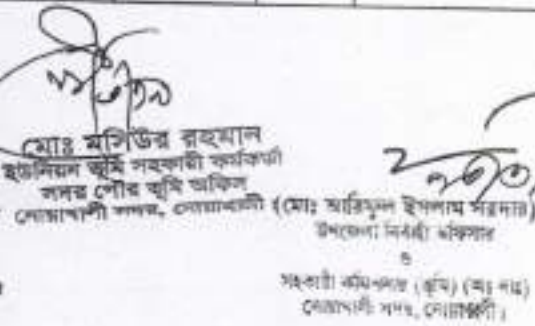 মোঃ মসিউর রহমান
ইউনিয়ন ভূমি সহকারী কর্মকর্তা
সদর পৌর ভূমি অফিস
নোয়াখালী সদর, নোয়াখালী
(মোঃ আরিফুল ইসলাম সরদার)
উপজেলা নির্বাহী অফিসার
ও
সহকারী কমিশনার (ভূমি) (অঃ দাঃ)
নোয়াখালী সদর, নোয়াখালী।